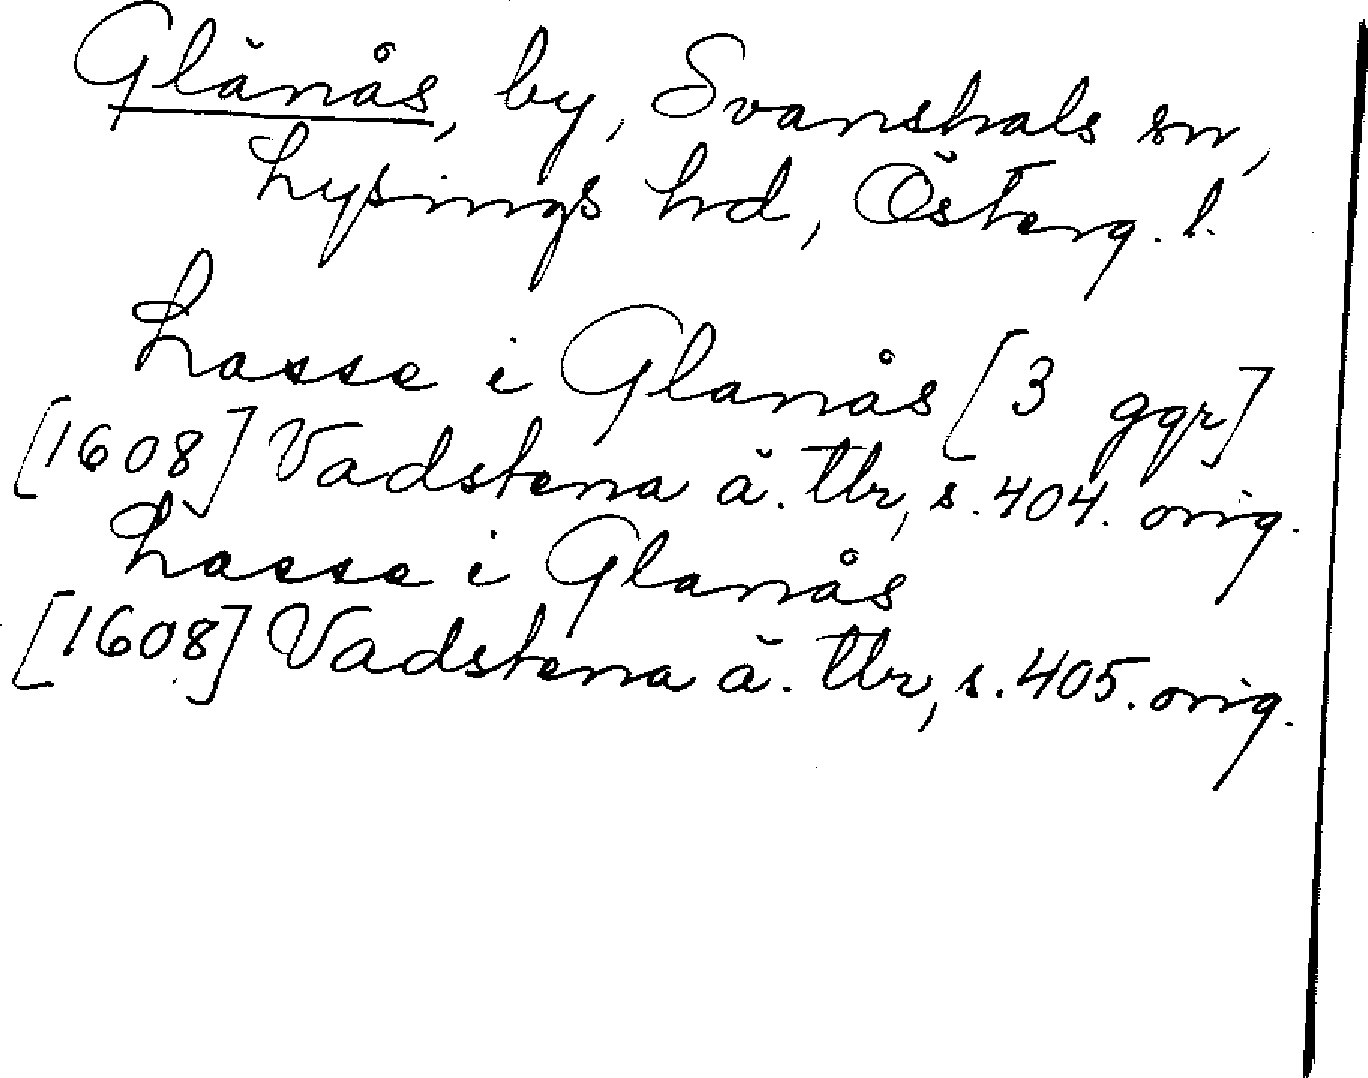 Glänås, by, Svanshals sn,
Lysings hd, Österg. l.
Lasse i Glanås [3 ggr]
[1608] Vadstena ä. tbr, s. 404. orig.
Lasse i Glanås
[1608] Vadstena ä. tbr, s. 405. orig.